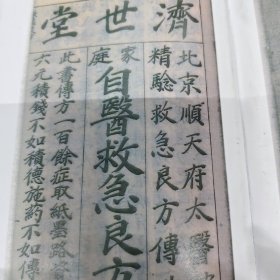 濟世堂
北京順天府太醫
精驗救急良方傳
家庭
自醫救急良方
此書傳方一百餘症取紙墨路
六元積錢不如積德施葯不如傳